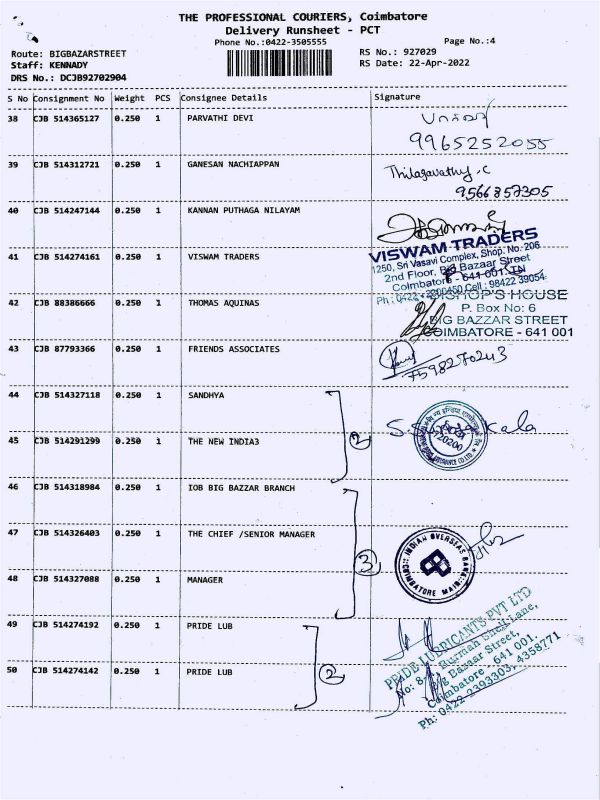 THE PROFESSIONAL COURIERS, Coimbatore
Delivery Runsheet - PCT
Phone No.:0422-3505555
Page No.:4
Route: BIGBAZARSTREET
RS No.: 927029
Staff: KENNADY
RS Date: 22-Apr-2022
DRS No.: DCJB92702904
S No Consignment No Weight PCS Consignee Details Signature
38 CJB 514365127 0.250 1 PARVATHI DEVI
9965252055
39 CJB 514312721 0.250 1 GANESAN NACHIAPPAN Thilagavathy.C
9566857305
40 CJB 514247144 0.250 1 KANNAN PUTHAGA NILAYAM
41 CJB 514274161 0.250 1 VISWAM TRADERS
VISWAM TRADERS
1250, Sri Vasavi Complex, Shop. No. 206
2nd Floor, Big Bazaar Street
Coimbatore - 641 001. TN
Cell : 98422 39054
42 CJB 88386666 0.250 1 THOMAS AQUINAS
BISHOP'S HOUSE
P. Box No: 6
BIG BAZZAR STREET
COIMBATORE - 641 001
43 CJB 87793366 0.250 1 FRIENDS ASSOCIATES
7598270243
44 CJB 514327118 0.250 1 SANDHYA
2
45 CJB 514291299 0.250 1 THE NEW INDIA3
46 CJB 514318984 0.250 1 IOB BIG BAZZAR BRANCH
47 CJB 514326403 0.250 1 THE CHIEF /SENIOR MANAGER
3
INDIAN OVERSEAS BANK
COIMBATORE MAIN
48 CJB 514327088 0.250 1 MANAGER
49 CJB 514274192 0.250 1 PRIDE LUB
2
50 CJB 514274142 0.250 1 PRIDE LUB
PRIDE LUBRICANTS PVT LTD
Burmah Shell Lane,
Big Bazaar Street,
Coimbatore - 641 001.
Ph: 0422-2393303, 4358771